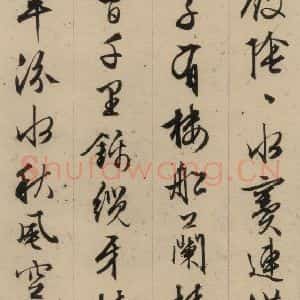 陰〻水連
子有樓船蘭
百千里錦纜牙
年流水秋風空
Shufawang.CN